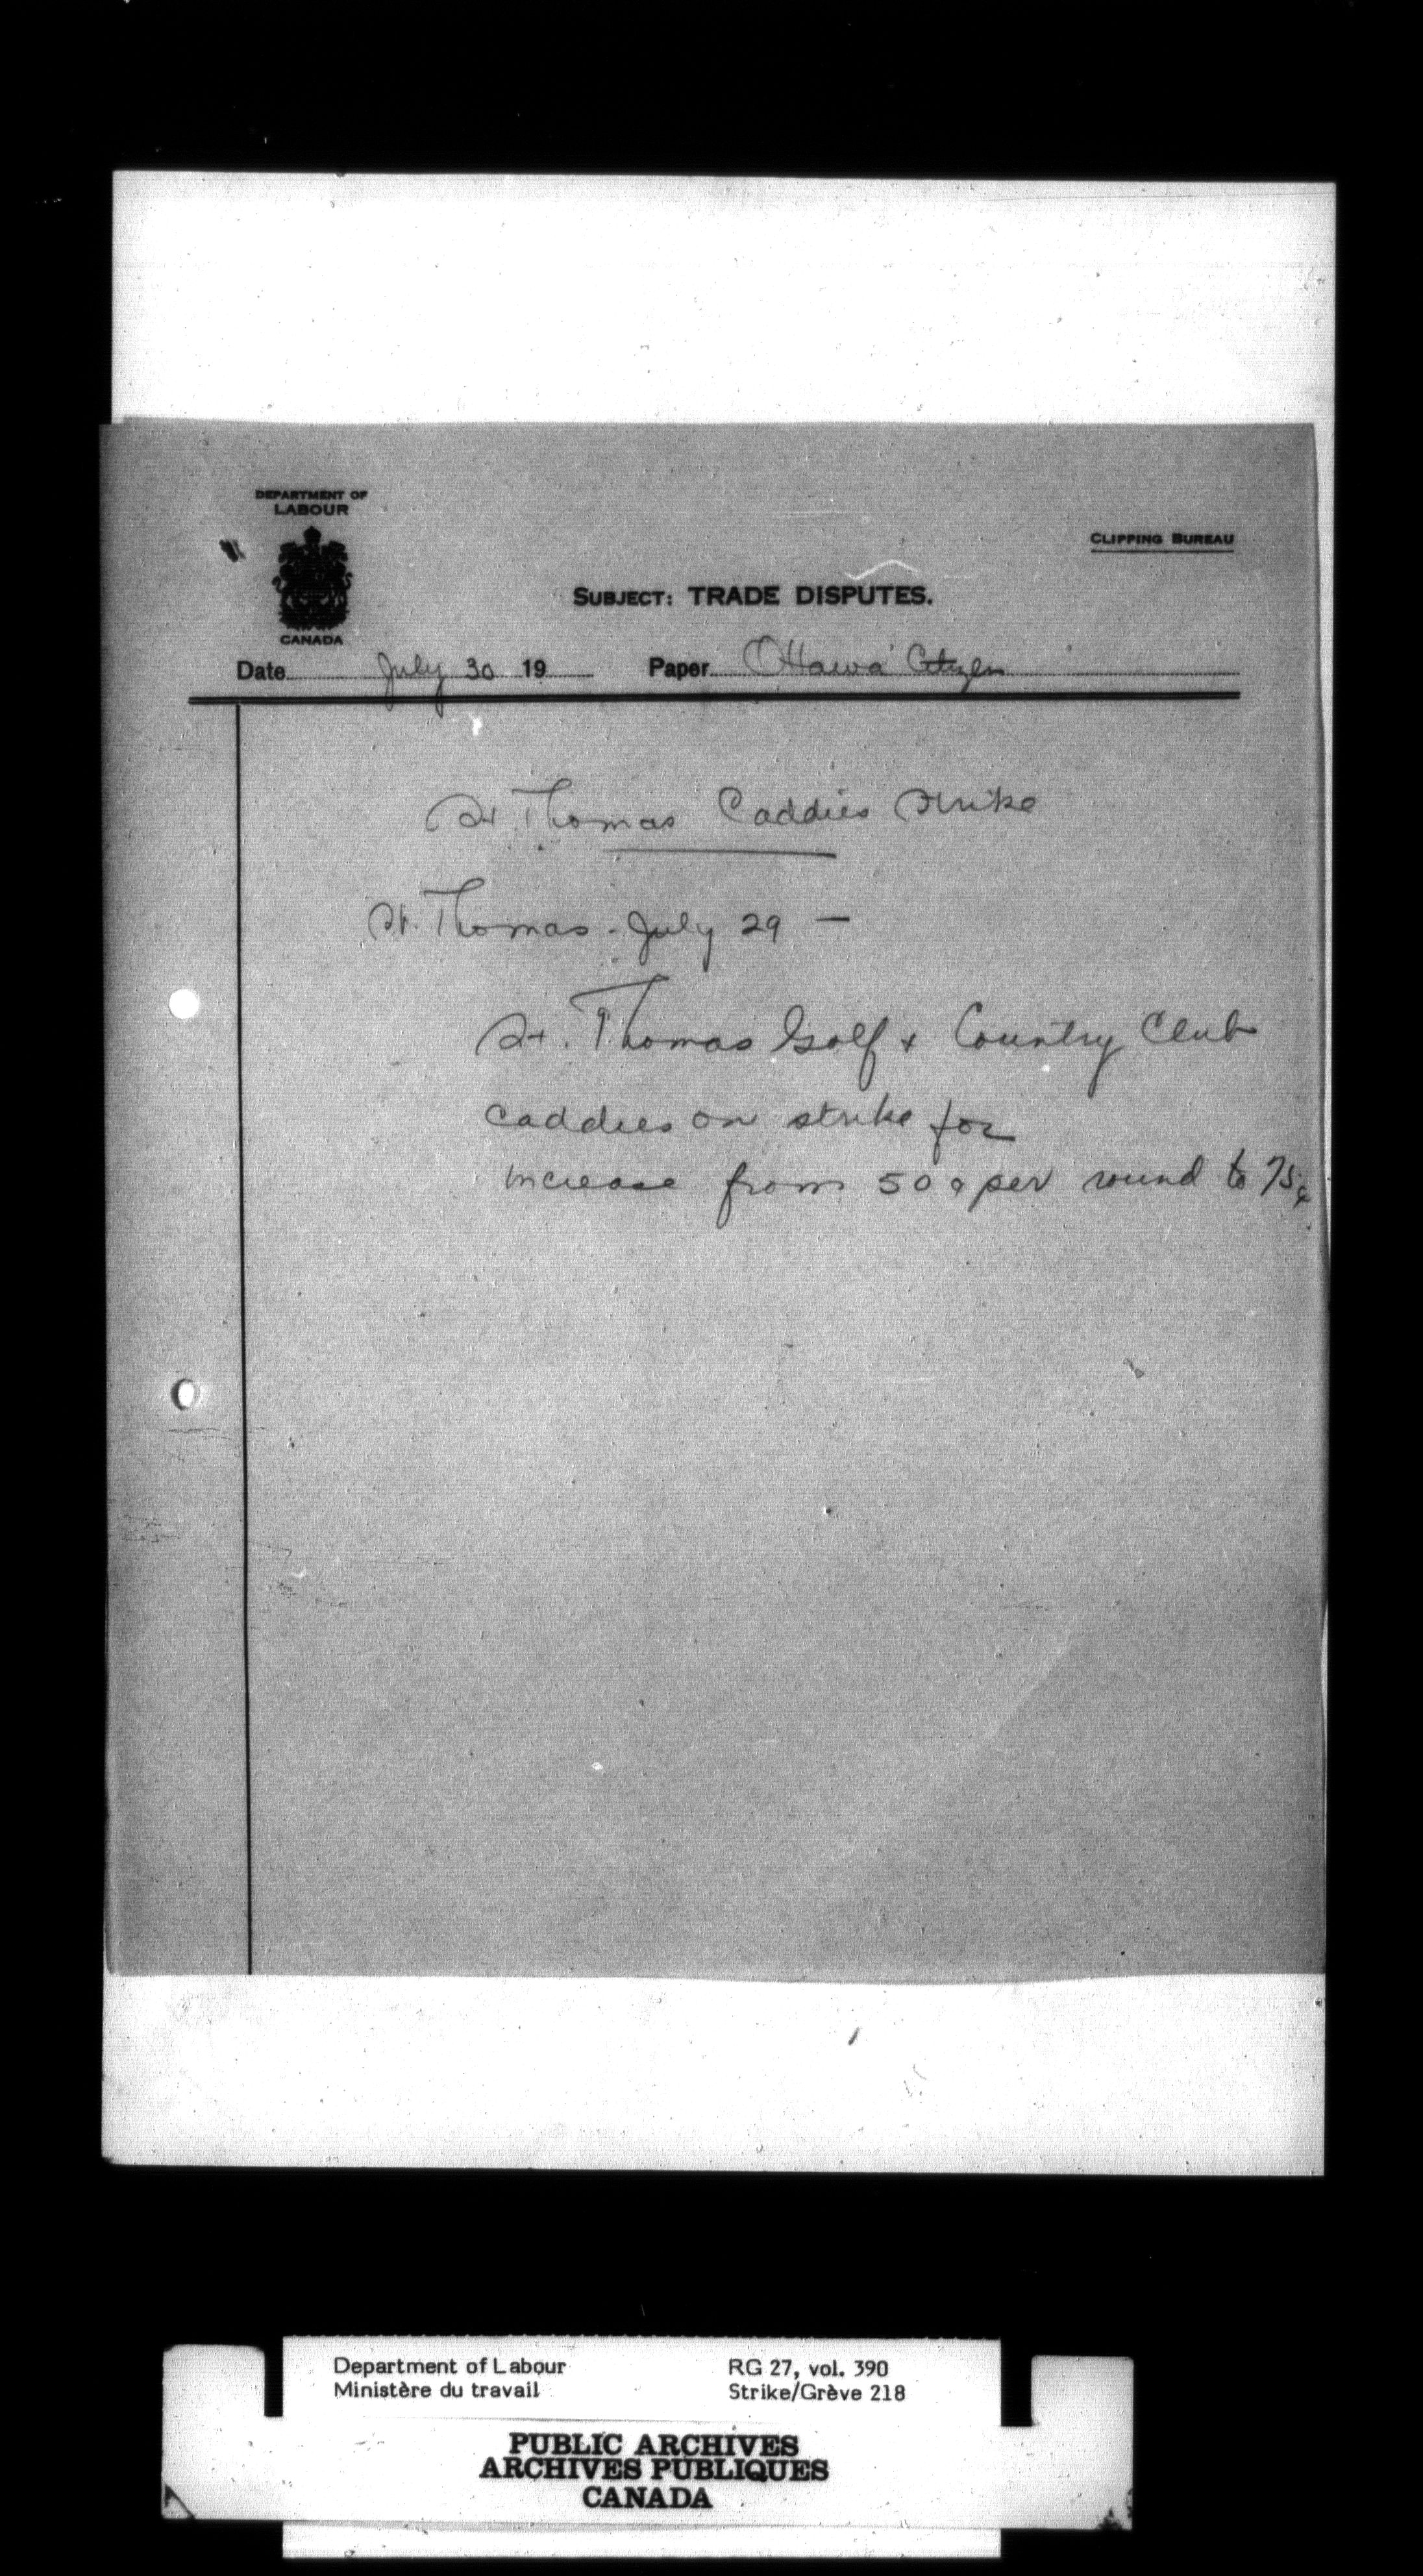 DEPARTMENT OF
LABOUR
CANADA
CLIPPING BUREAU
SUBJECT: TRADE DISPUTES.
Date July 30 19 Paper Ottawa Citizen
St. Thomas Caddies Strike
St. Thomas - July 29 —
St. Thomas Golf + Country Club
caddies on strike for
increase from 50¢ per round to 75¢
Department of Labour
Ministère du travail
RG 27, vol. 390
Strike/Grève 218
PUBLIC ARCHIVES
ARCHIVES PUBLIQUES
CANADA